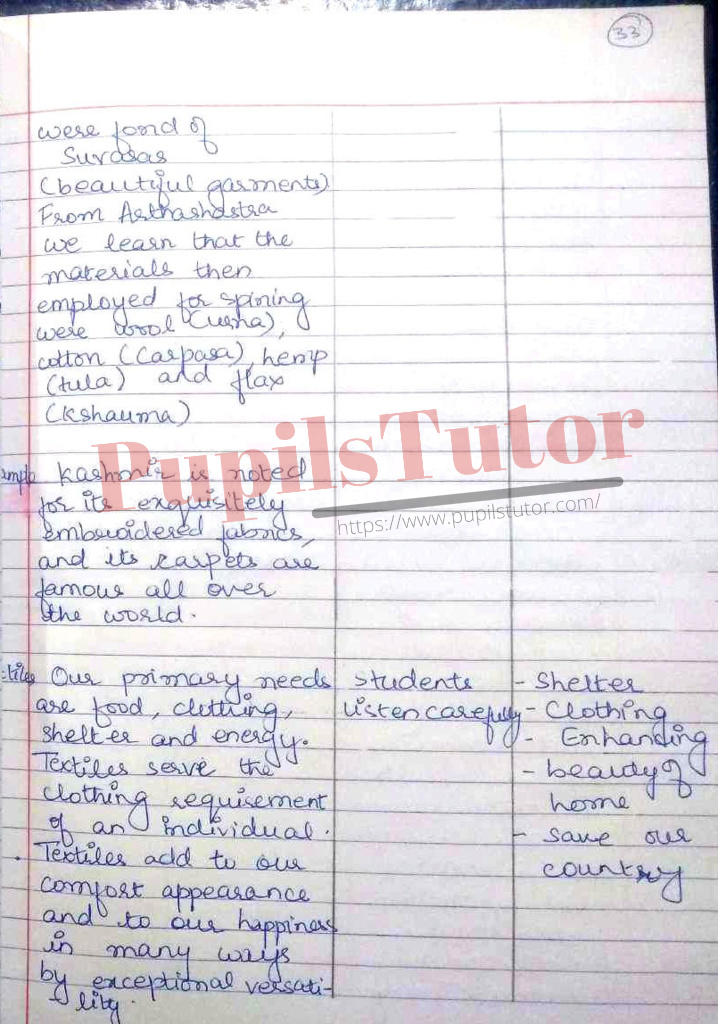 33
were fond of
Suvasas
(beautiful garments)
From Arthashastra
we learn that the
materials then
employed for spining
were wool (urna),
cotton (Carpasa), hemp
(tula) and flax
(Kshauma)
Kashmir is noted
for its exquisitely
embroidered fabrics,
and its carpets are
famous all over
the world.
PupilsTutor
https://www.pupilstutor.com/
Our primary needs
are food, clothing,
shelter and energy.
Textiles serve the
clothing requirement
of an individual.
. Textiles add to our
comfort appearance
and to our happiness
in many ways
by exceptional versati-
-lity.
students
listen carefully
- Shelter
- Clothing
- Enhancing
- beauty of
home
- save our
country